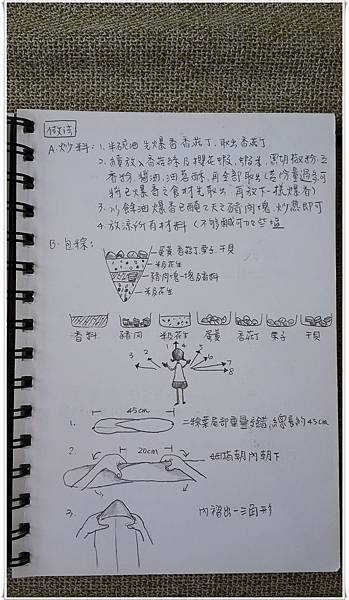 做法
A. 炒料：1. 半碗油先爆香香菇丁，取出香菇丁
2. 續放入香菇絲及櫻花蝦、蝦米、黑胡椒粉、五
香粉、醬油、油蔥酥，再全部取出(若份量過多可
將已爆香之食材先取出，再放下一樣爆香)
3. 以餘油爆香已醃2天之豬肉塊，炒熟即可
4. 放涼所有材料(不夠鹹可加些塩
B. 包粽：
蛋黃、香菇丁、栗子、干貝
米花生
豬肉塊一塊及香料
米花生
香料 豬肉 米花生 蛋黃 香菇丁 栗子 干貝
3 2 1 4 5 6 7 8
45cm
1. 二粽葉尾部重疊交錯，總長約45cm
20cm
2. 姆指朝內朝下
3. 內褶出一三角形